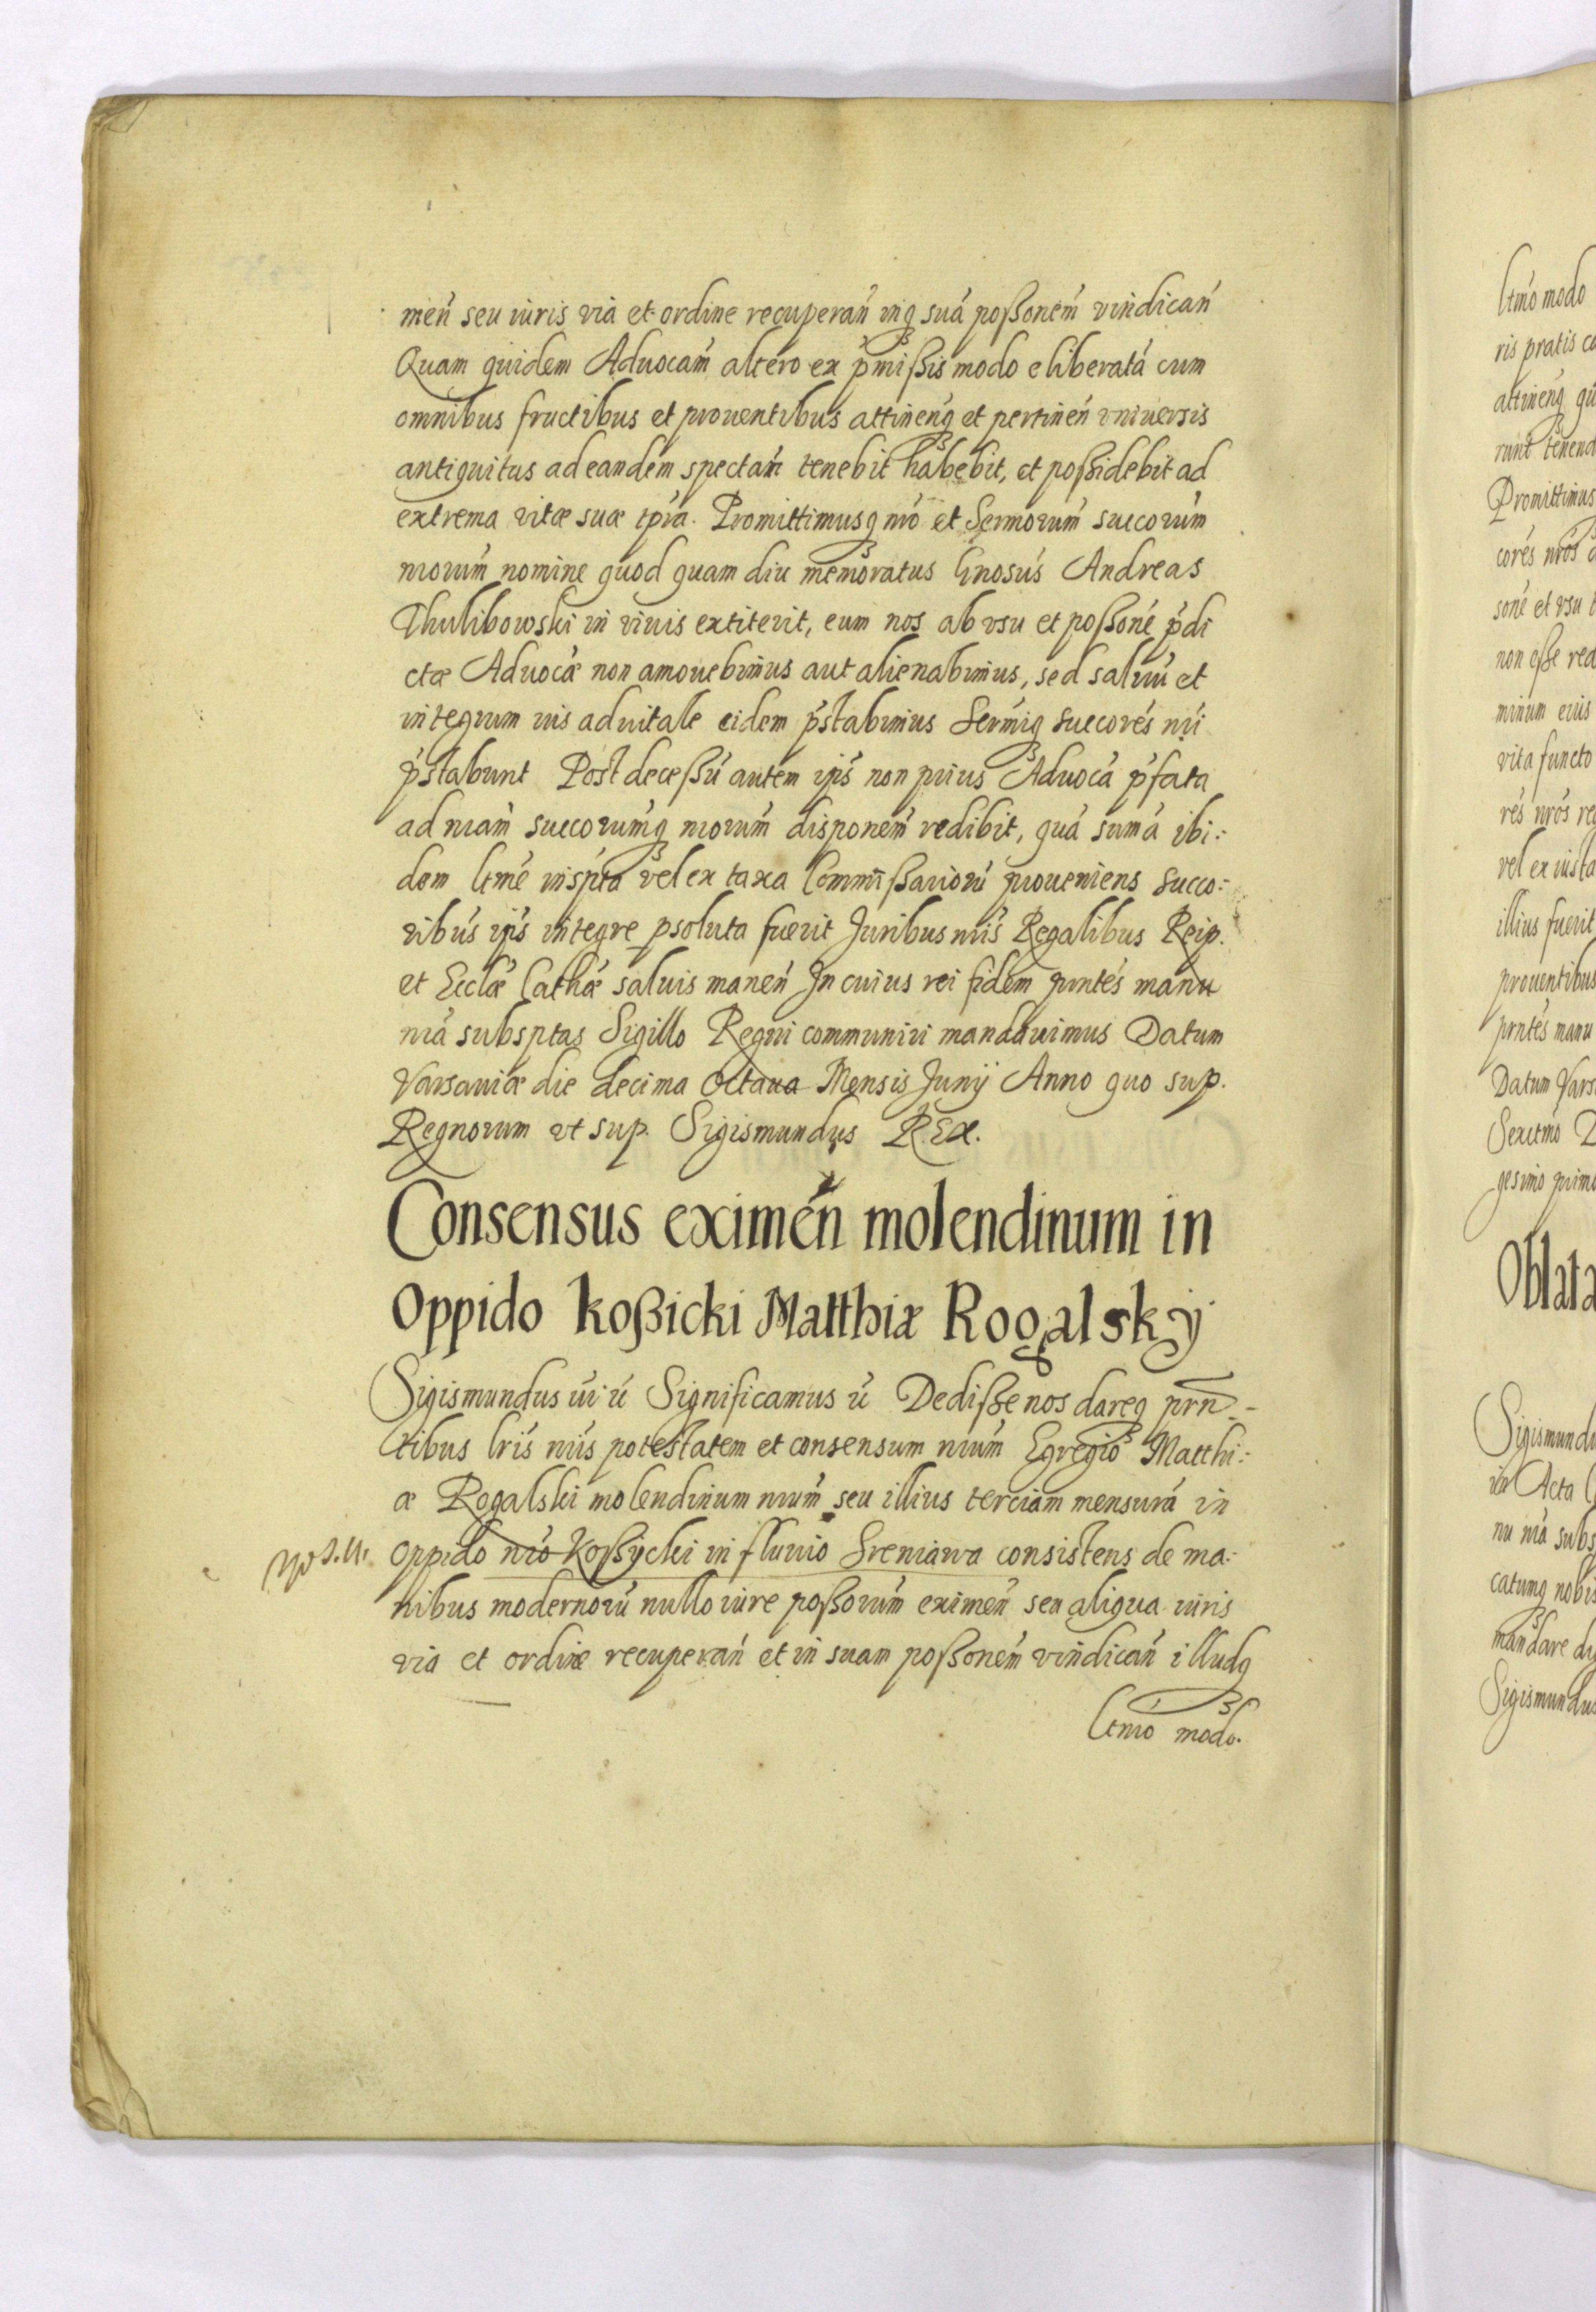 men̄ seu iuris via et ordine recuperan̄ inq₃ suā poßonem̄ vindican̄
Quam quidem Aduocam̄ altero ex p̄mißis modo eliberatā cum
omnibus fructibus et prouentibus attinen̄q₃ et pertinen̄ vniuersis
antiquitus ad eandem spectan̄ tenebit habebit, et poßidebit ad
extrema vitæ suæ tp̄ra. Promittimusq₃ nr̄o et Serm̄orum succorum̄
nr̄orum nomine quod quam diu memoratus Gn̄osus Andreas
Thulibowski in viuis extiterit, eum nos ab vsu et poßonē p̄di
ctæ Aduocǣ non amouebimus aut alienabimus, sed saluū et
integrum ius aduitale eidem p̄stabimus Serm̄iq₃ succorēs nr̄i
p̄stabunt Post deceßū autem ip̄s non prius Aduocā p̄fata
ad nr̄am succorum̄q₃ nr̄orum disponem̄ redibit, quā sum̄a ibi:
dem Ltm̄e inspta vel ex taxa Commißariorū proueniens succo:
ribus ip̄s integre psoluta fuerit Juribus nr̄is Regalibus Reip.
et Ecclǣ Cathǣ saluis manen̄ In cuius rei fidem prntēs manu
nr̄a subsptas Sigillo Regni communiri mandauimus Datum
Varsauiæ die decima Octaua Mensis Junij Anno quo sup.
Regnorum vt sup. Sigismundus REX.
Consensus eximen̄ molendinum in
Oppido Koßicki Matthiæ Rogalskÿ
Sigismundus iii ū Significamus ū Dediße nos dareq₃ prn̄
tibus Lr̄is nr̄is potestatem et consensum nr̄um Egregio Matthi:
æ Rogalski molendinum nr̄um seu illius terciam mensurā in
oppido nr̄o Koßÿcki in fluuio Sreniawa consistens de ma:
nibus modernorū nullo iure poßorum̄ eximen̄ seu aliqua iuris
via et ordine recuperan̄ et in suam poßonem̄ vindican̄ illudq₃
Ltm̄o modo.
Ltm̄o modo
ris pratis
attinen̄q₃
runt tenend
Promittimus
corēs nr̄os
sonē et vsu
non eße red
minum eius
vita functo
rēs nr̄os
vel ex iusta
illius fuerit
prouentibus
prntēs manu
Datum Vars
Sexctm̄o
gesimo primo
Oblata
Sigismundu
in Acta
nu nr̄a subs
catumq₃ nobis
mandare
Sigismundus